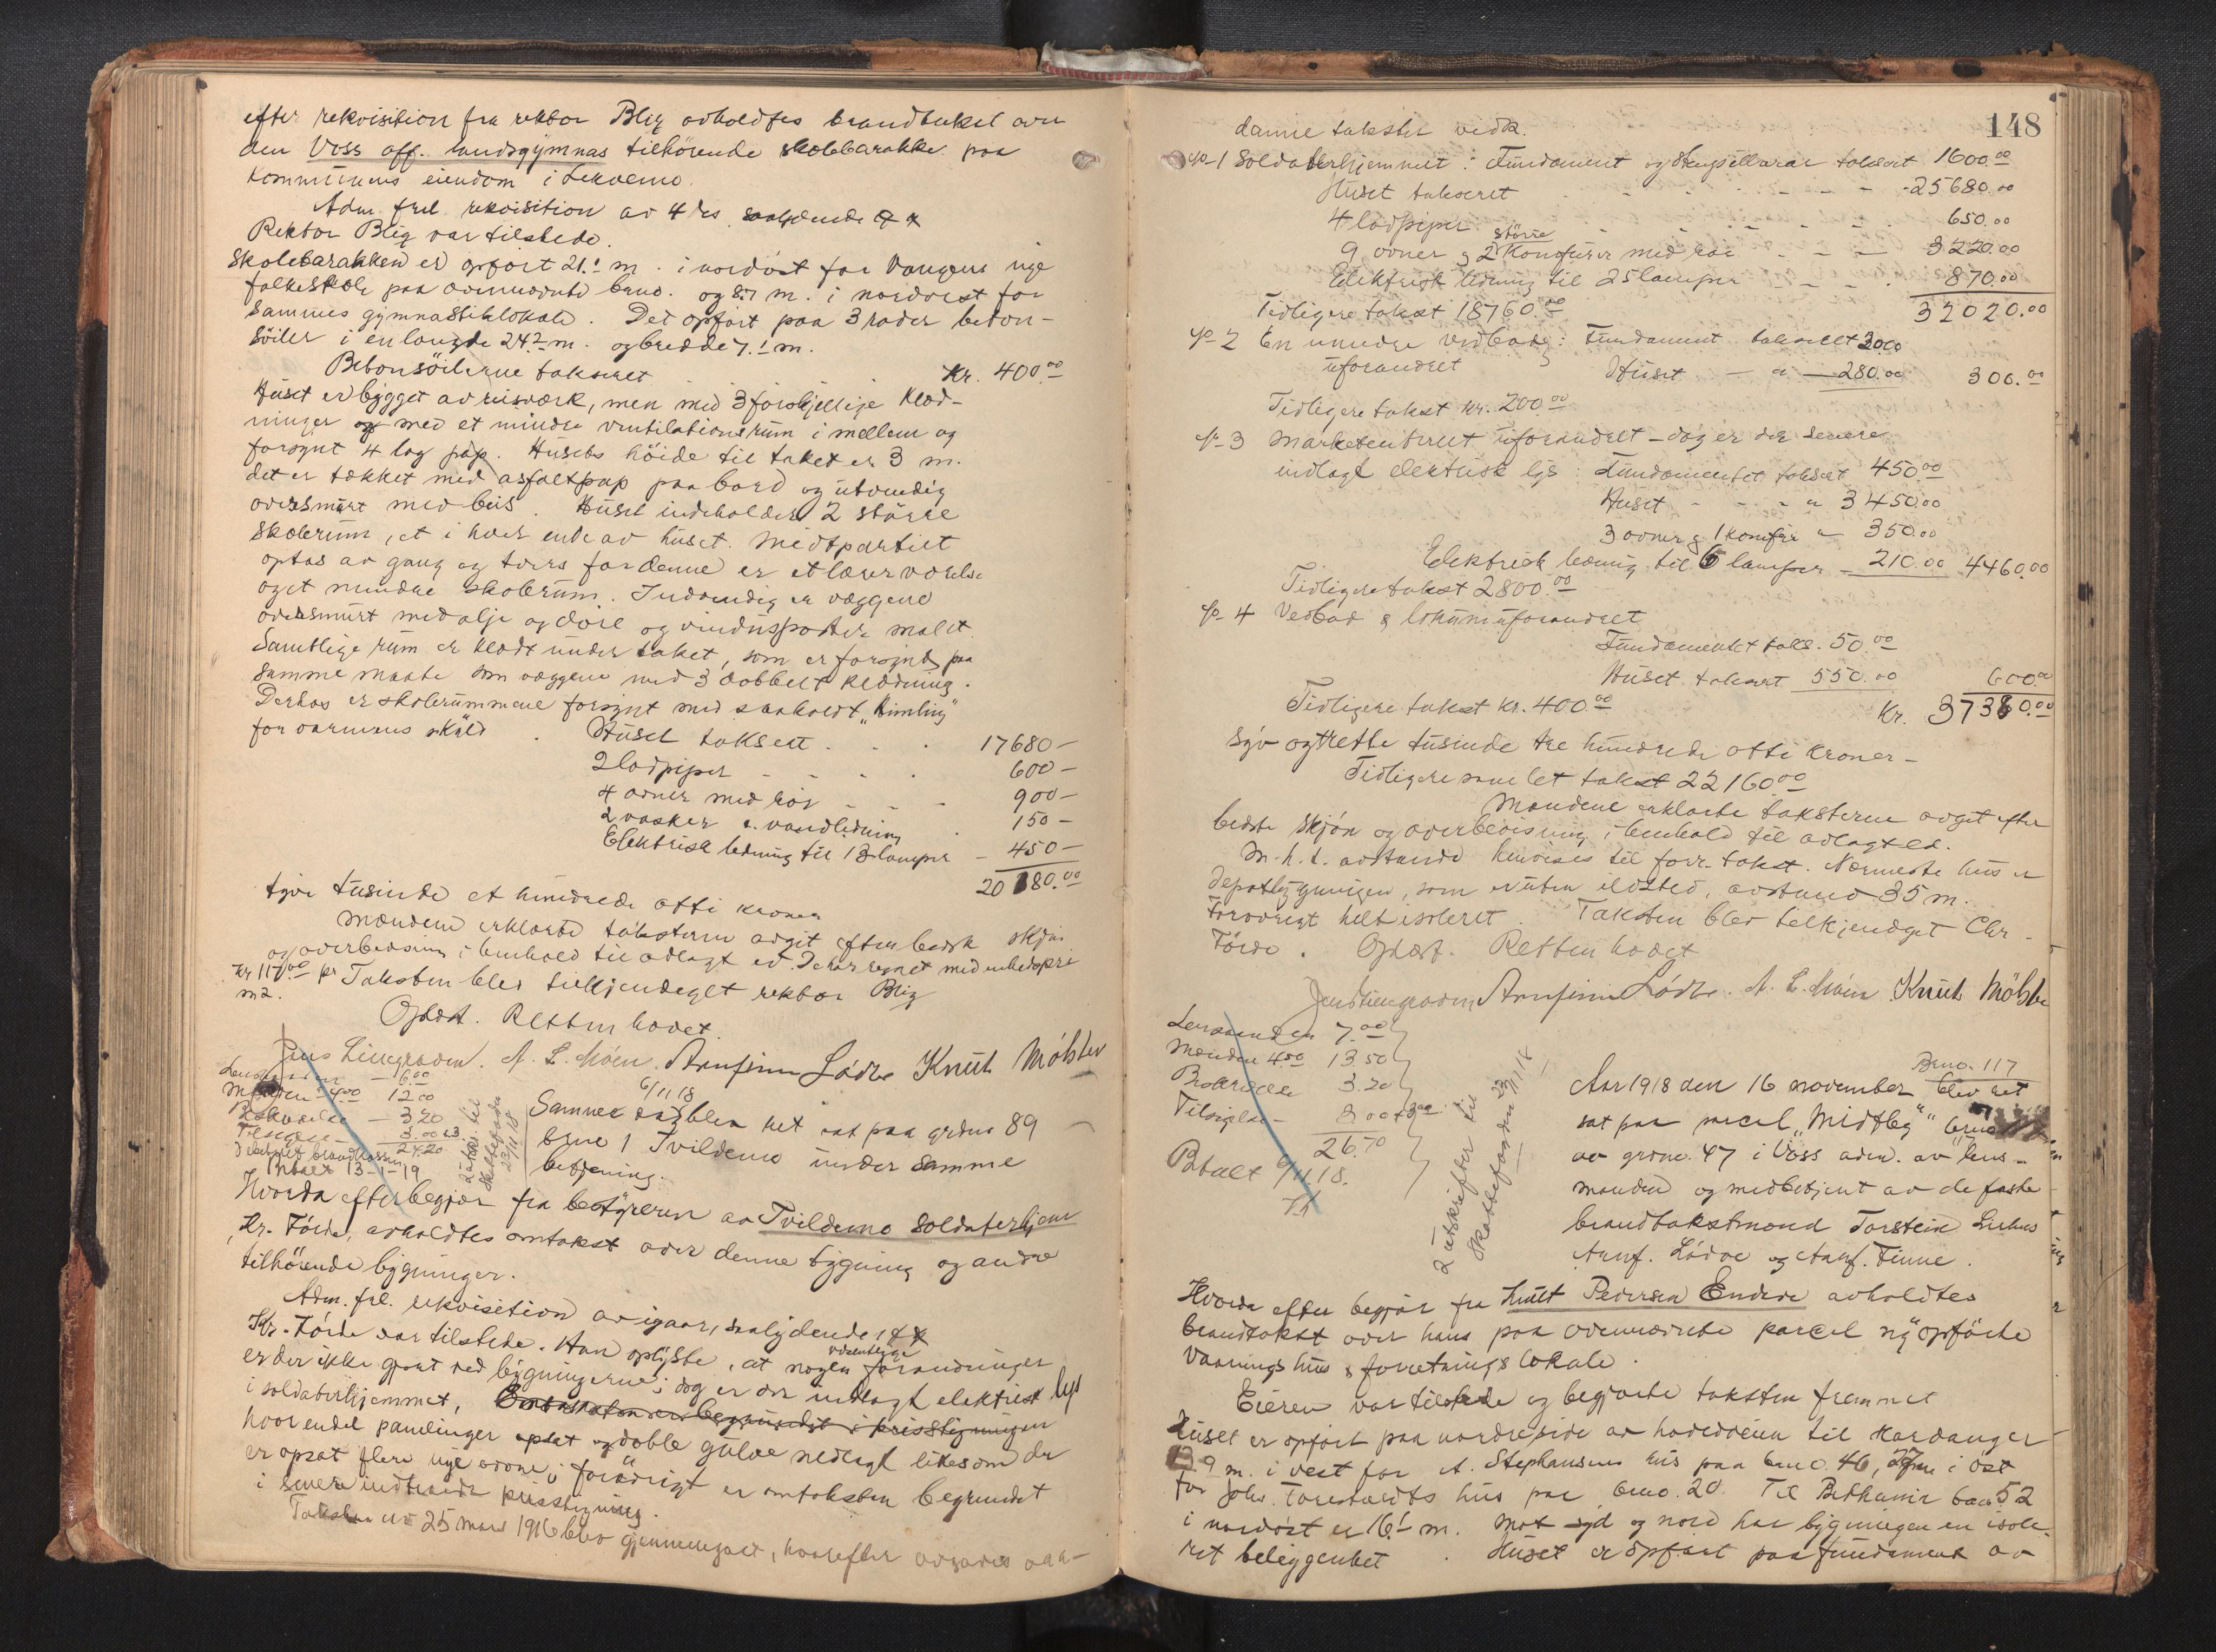 efter rekvisition fra rektor Bliz avholdtes brandtakst over
den Voss off. landsgymnas tilhörende skolebarakke paa
kommunens eiendom i Lekvemo.
Adm. frel. rekvisition av 4 ds. saalydende
Rektor Bliz var tilstede.
Skolebarakken er opført 21.1 m. i nordöst for Vangens nye
folkeskole paa ovennævnte bruno. og 8.7 m. i nordvest for
sammes gymnastiklokale. Det opført paa 3 rader beton-
söiler i en længde 24.2 m. og bredde 7.1 m.
Betonsöilerne takseret Kr. 400.00
Huset er bygget av reisverk, men med 3 forskjellige klæd-
ninger og med et mindre ventilationsrum i mellem og
forsynt 4 lag pap. Husets höide til taket er 3 m.
det er tækket med asfaltpap paa bord og utvendig
oversmurt med beis. Huset indeholder 2 större
skolerum, et i hver ende av huset. Midtpartiet
optas av gang og tvers for denne er et lærerværelse
og et mindre skolerum. Indvendig er væggene
oversmurt med olje og döre og vinduspostere malet.
Samtlige rum er klædt under taket, som er forsynt paa
samme maate som væggene med 3 dobbelt klædning.
Derhos er skolerummene forsynt med saakaldt "Himling"
for varmens skyld.
Huset takseret 17680 —
2 ladpiper 600 —
4 ovner med rör 900 —
2 vasker o. vandledning 150 —
Elektrisk ledning til 13 lamper 450 —
20180.00
tyve tusinde et hundrede otti kroner
Mændene erklærte taksterne avgit efter bedste skjön
og overbevisning i henhold til avlagt ed. De har regnet med enhedspris
kr 117.00 pr m2. Taksten blev tilkjendegit rektor Bliz
Oplæst. Retten hævet.
Jens Lillegraven. A. L. Moen. Arnfinn Lödve Knut Mölster
Lensmanden — 6.00
Mænden 4.00 12.00
Bokværelse — 3.20
Tilsigelse 3.00
24.20
Debiteret brandkassen
Betalt 13-1-19
2 utskr. til
Skattefonden
23/11 18
6/11 18
Samme dag blev ret sat paa grdno 89
brno 1 Tvildemo under samme
betjening.
Hvorda efter begjær fra bestyreren av Tvildemo Soldaterhjem
Hr. Förde, avholdtes omtakst over denne bygning og andre
tilhörende bygninger.
Adm. frl. rekvisition av igaar, saalydende
Hr. Förde var tilstede. Han oplyste, at nogen væsentlige forandringer
er der ikke gjort ved bygningerne; dog er der indlagt elektrisk lys
i soldaterhjemmet, Omtaksten er begrundet i prisstigningen
hvor endel panelinger opsat og doble gulve nedlagt likesom der
er opsat flere nye ovne; forövrigt er omtaksten begrundet
i senere indtraadt prisstigning.
Taksten av 25 mars 1916 blev gjennemgaat, hvorefter avgaves saa-
148
danne takster vedk.
No 1 Soldaterhjemmet: Fundament og Skupillarar takseret 1600.00
Huset takseret 25680.00
4 ladpiper 650.00
9 ovner og 2 större Komfurer med rör 3220.00
Elektrisk ledning til 25 lamper 870.00
Tidligere takst 18760.00 32020.00
No 2 En mindre vedbod: Fundament takseret 20.00
uforandret Huset — " — 280.00 300.00
Tidligere takst kr. 200.00
No 3 Marketenteriet uforandret — dog er der senere
indlagt elektrisk lys: Fundamentet takseret 450.00
Huset " 3450.00
3 ovner og 1 komfur " 350.00
Elektrisk ledning til 6 lamper — 210.00 4460.00
Tidligere takst 2800.00
No 4 Vedbod & lokum uforandret
Fundamentet taks. 50.00
Huset takseret 550.00 600.00
Tidligere takst kr. 400.00 Kr. 37380.00
syv og trette tusinde tre hundrede otti kroner —
Tidligere samlet takst 22160.00
Mændene erklærte taksterne avgit efter
bedste skjön og overbevisning i henhold til avlagt ed.
M. h. t. avstande henvises til forr. takst. Nærmeste hus er
depotbygningen, som er uten ildsted, avstand 35 m.
Forövrigt helt isoleret. Taksten blev tilkjendegit Chr.
Förde. Oplæst. Retten hævet
Jens Lillegraven Arnfinn Lödve. A. L. Moen Knut Mölster
Lensmanden 7.00
Mænden 4.50 13.50
Bokværelse 3.20
Tilsigelse — 3.00
26.70
Betalt 6/11 18.
2 utskrifter til
Skattefonden 23/11 18
Brno. 117
Aar 1918 den 16 november blev ret
sat paa parcel "Midtby" brno
av grdno. 47 i Voss adm. av lens-
manden og medbetjent av de faste
brandtakstmænd Torstein Lirhus
Arnf. Lödve og Arnf. Finne.
Hvorda efter begjær fra Knut Pedersen Endeve avholdtes
brandtakst over hans paa ovennævnte parcel nyopförte
Vaaningshus & forretningslokale.
Eieren var tilstede og begjærte taksten fremmet
Huset er opført paa nordre side av hovedveien til Hardanger
9 m. i vest for A. Stephansens hus paa bruno. 46, i öst
for Johs. Torestveidts hus paa bruno. 20. Til Bethania brno 52
i nordöst er 16.1 m. Mot syd og nord har bygningen en isole-
ret beliggenhet. Huset er opfört paa fundament av